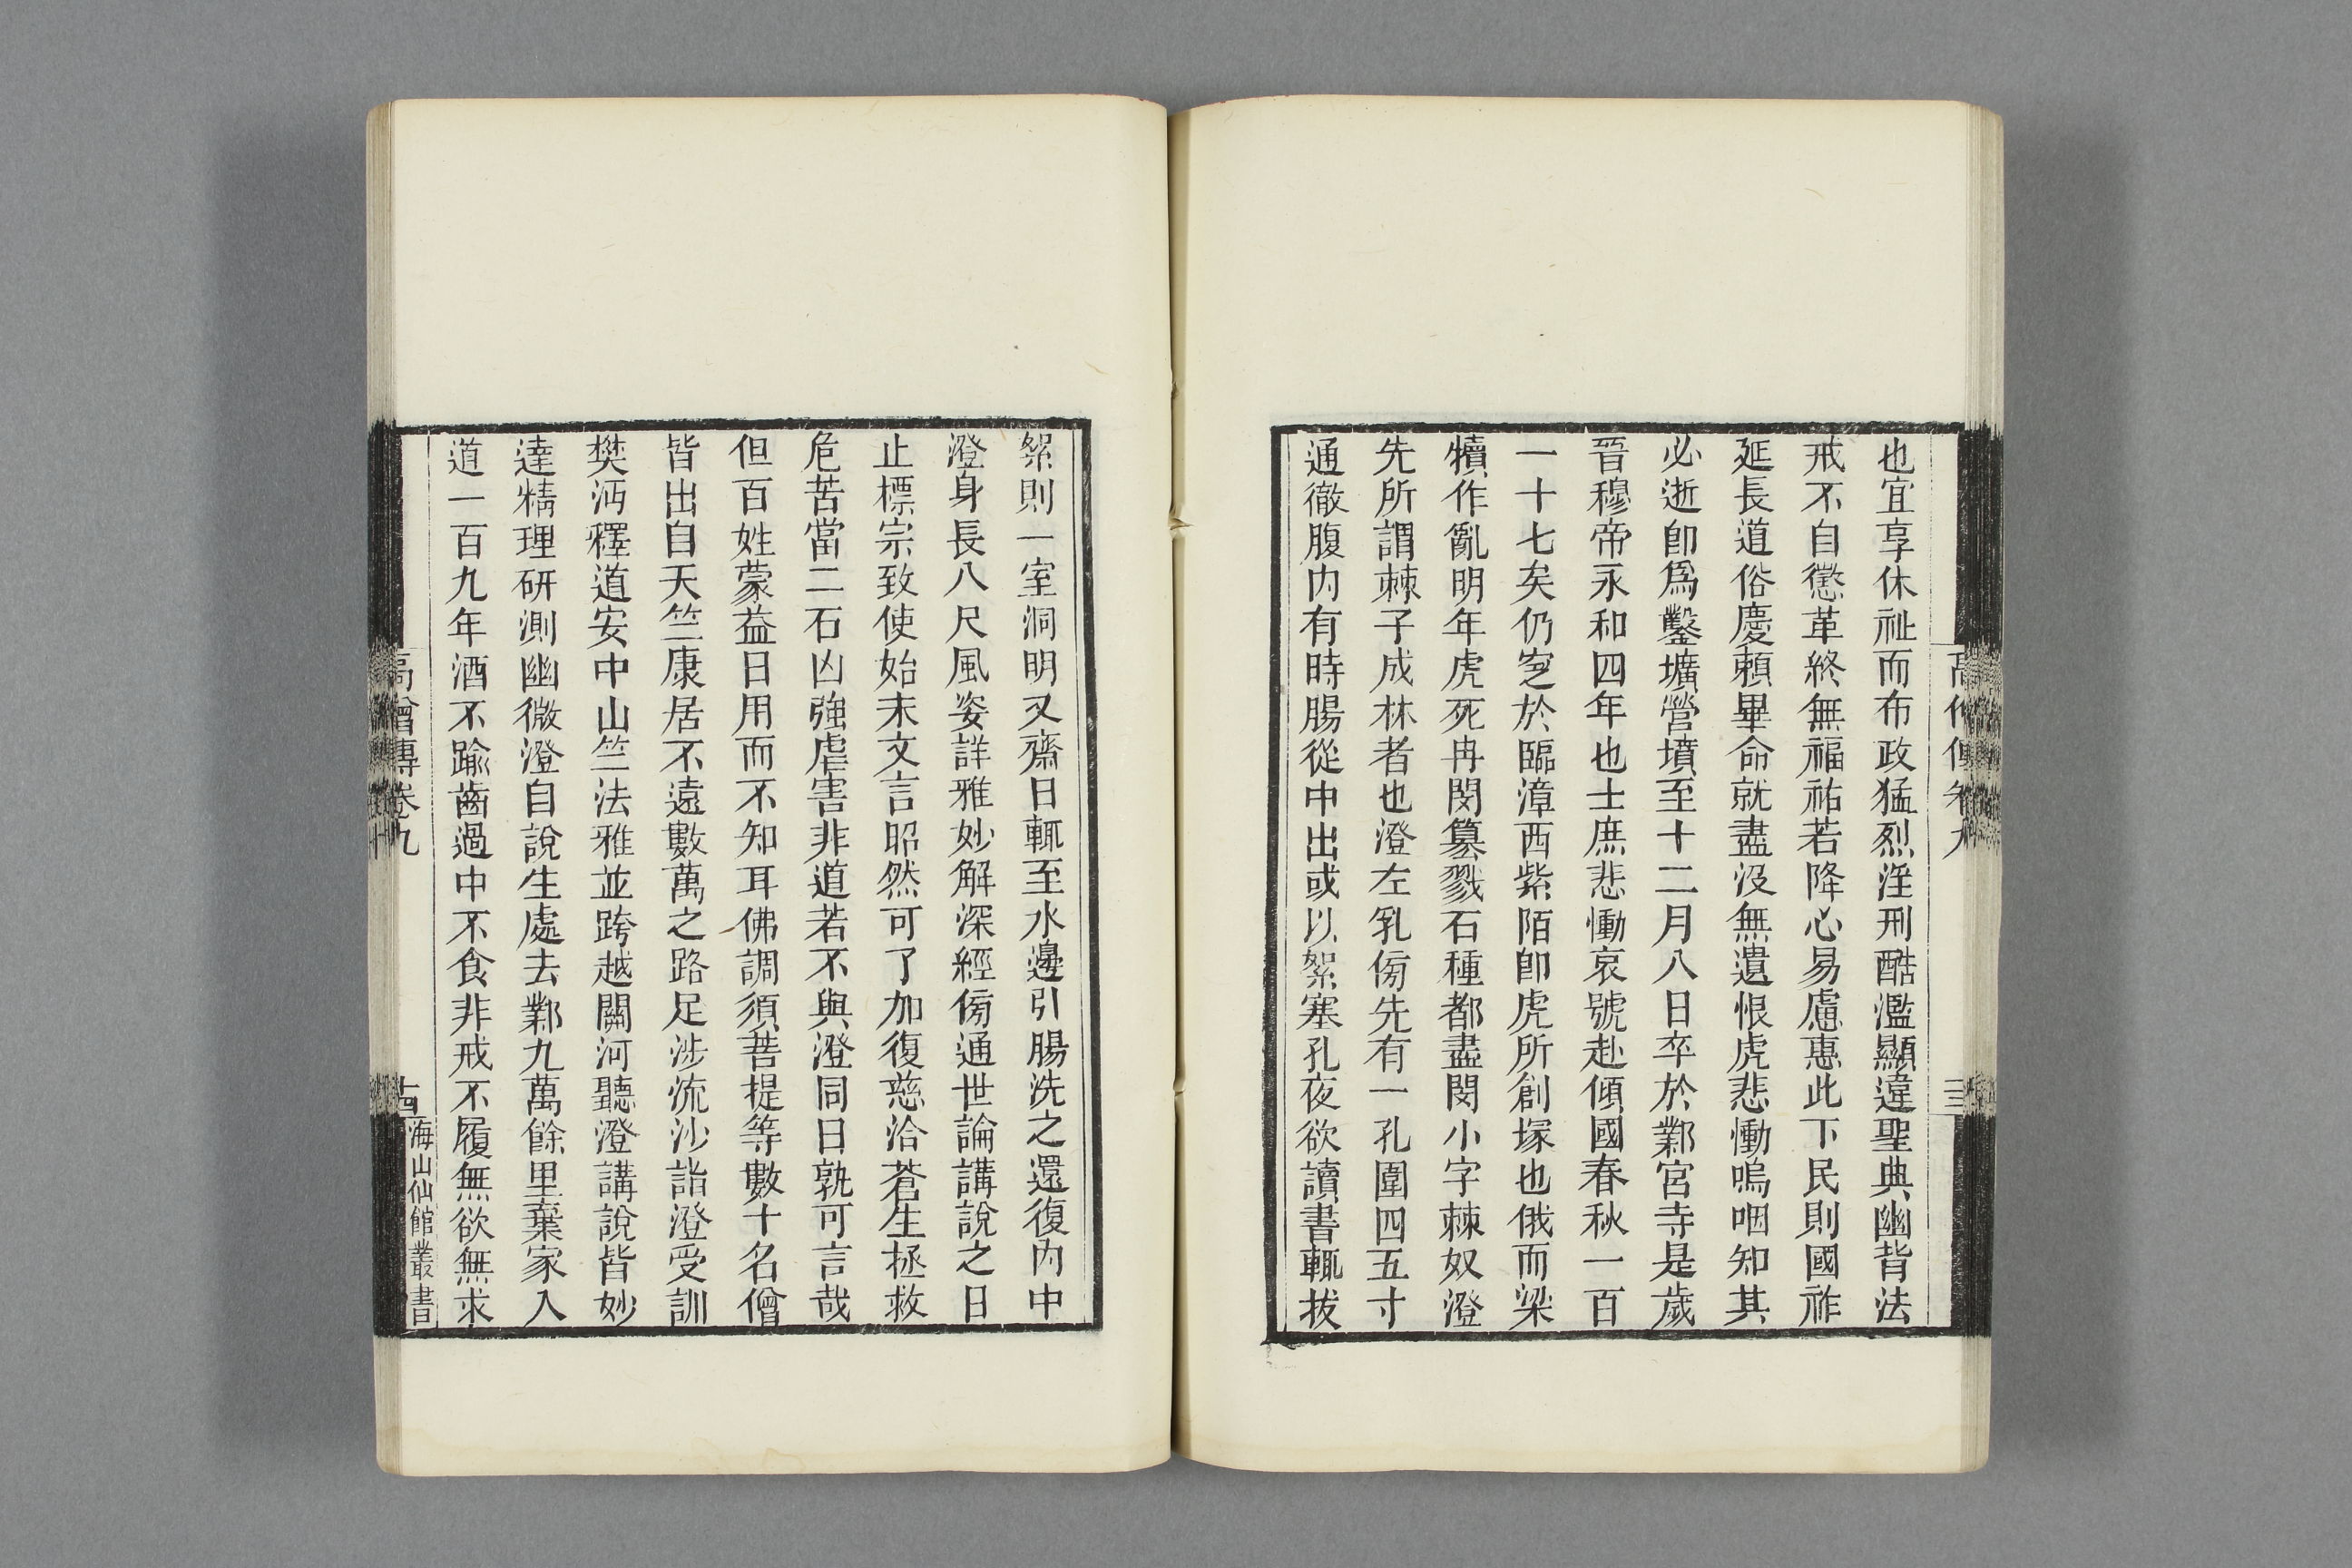 也宜享休祉而布政猛烈淫刑酷濫顯違聖典幽背法
戒不自懲革終無福祐若降心易慮惠此下民則國祚
延長道俗慶賴畢命就盡沒無遺恨虎悲慟嗚咽知其
必逝卽爲鑿壙營墳至十二月八日卒於鄴宮寺是歲
晉穆帝永和四年也士庶悲慟哀號赴傾國春秋一百
一十七矣仍窆於臨漳西紫陌卽虎所創塚也俄而梁
犢作亂明年虎死冉閔篡戮石種都盡閔小字棘奴澄
先所謂棘子成林者也澄左乳傍先有一孔圍四五寸
通徹腹內有時腸從中出或以絮塞孔夜欲讀書輒拔
絮則一室洞明又齋日輒至水邊引腸洗之還復內中
澄身長八尺風姿詳雅妙解深經傍通世論講說之日
止標宗致使始末文言昭然可了加復慈洽蒼生拯救
危苦當二石凶強虐害非道若不與澄同日孰可言哉
但百姓蒙益日用而不知耳佛調須菩提等數十名僧
皆出自天竺康居不遠數萬之路足涉流沙詣澄受訓
樊沔釋道安中山竺法雅並跨越關河聽澄講說皆妙
達精理研測幽微澄自說生處去鄴九萬餘里棄家入
道一百九年酒不踰齒過中不食非戒不履無欲無求
高僧傳卷九
十四
海山仙館叢書